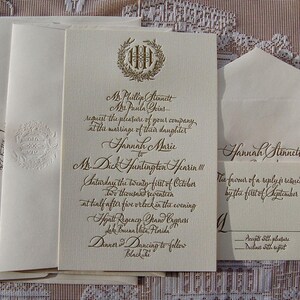 HH
Mr. Phillip Stennett
Mrs. Paula
request the pleasure of your company
at the marriage of their daughter
Hannah Marie
to
Mr. Dick Huntington Hearin III
Saturday the twenty-first of October
two thousand seventeen
at half after five o'clock in the evening
Hyatt Regency Grand Cypress
Lake Buena Vista, Florida
Dinner & Dancing to follow
black tie
Hannah Stennett
The favour of a reply is requested
by the first of September
M
accepts with pleasure
declines with regret